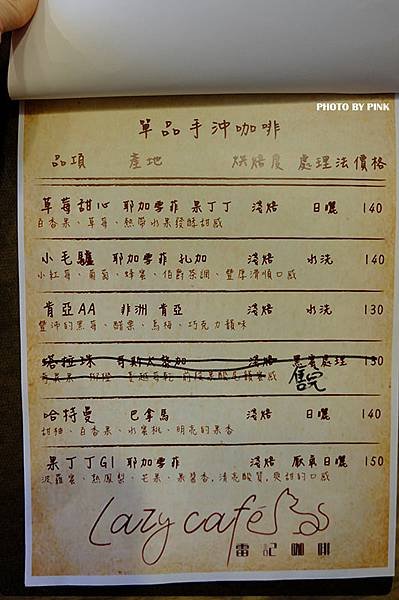 PHOTO BY PINK
單品手沖咖啡
品項 產地 烘焙度 處理法 價格
草莓甜心 耶加雪菲 果丁丁 淺焙 日曬 140
百香果、草莓、熱帶水果發酵甜感
小毛驢 耶加雪菲 孔加 淺焙 水洗 140
小紅莓、葡萄、蜂蜜、伯爵茶調、豐厚滑順口感
肯亞AA 非洲 肯亞 淺焙 水洗 130
豐沛的黑莓、醋栗、烏梅、巧克力韻味
塔拉珠 哥斯大黎加 淺焙 蜜處理 130
售完
哈特曼 巴拿馬 淺焙 日曬 140
甜柿、百香果、水蜜桃、明亮的果香
果丁丁G1 耶加雪菲 淺焙 厭氧日曬 150
波羅蜜、熱鳳梨、芒果、果醬香,清亮酸質,爽甜的口感
Lazy café
雷記咖啡